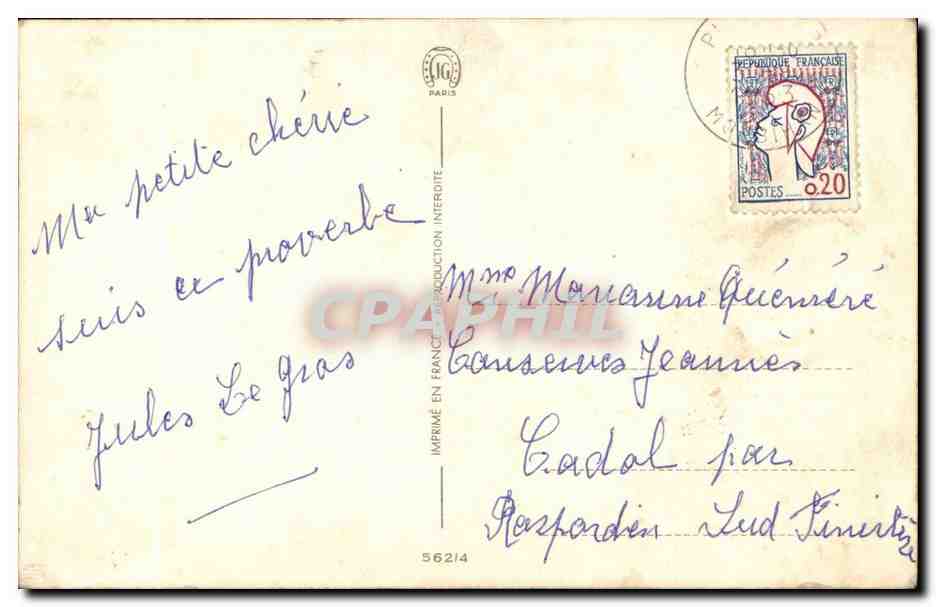 Ma petite chérie
suis ce proverbe
Jules Le Gros
JG
PARIS
IMPRIMÉ EN FRANCE REPRODUCTION INTERDITE
56214
REPUBLIQUE FRANÇAISE
POSTES
0.20
CPAPHIL
Mme Marianne Quéméré
Conserves Jeannès
Cadol par
Rosporden Sud Finistère